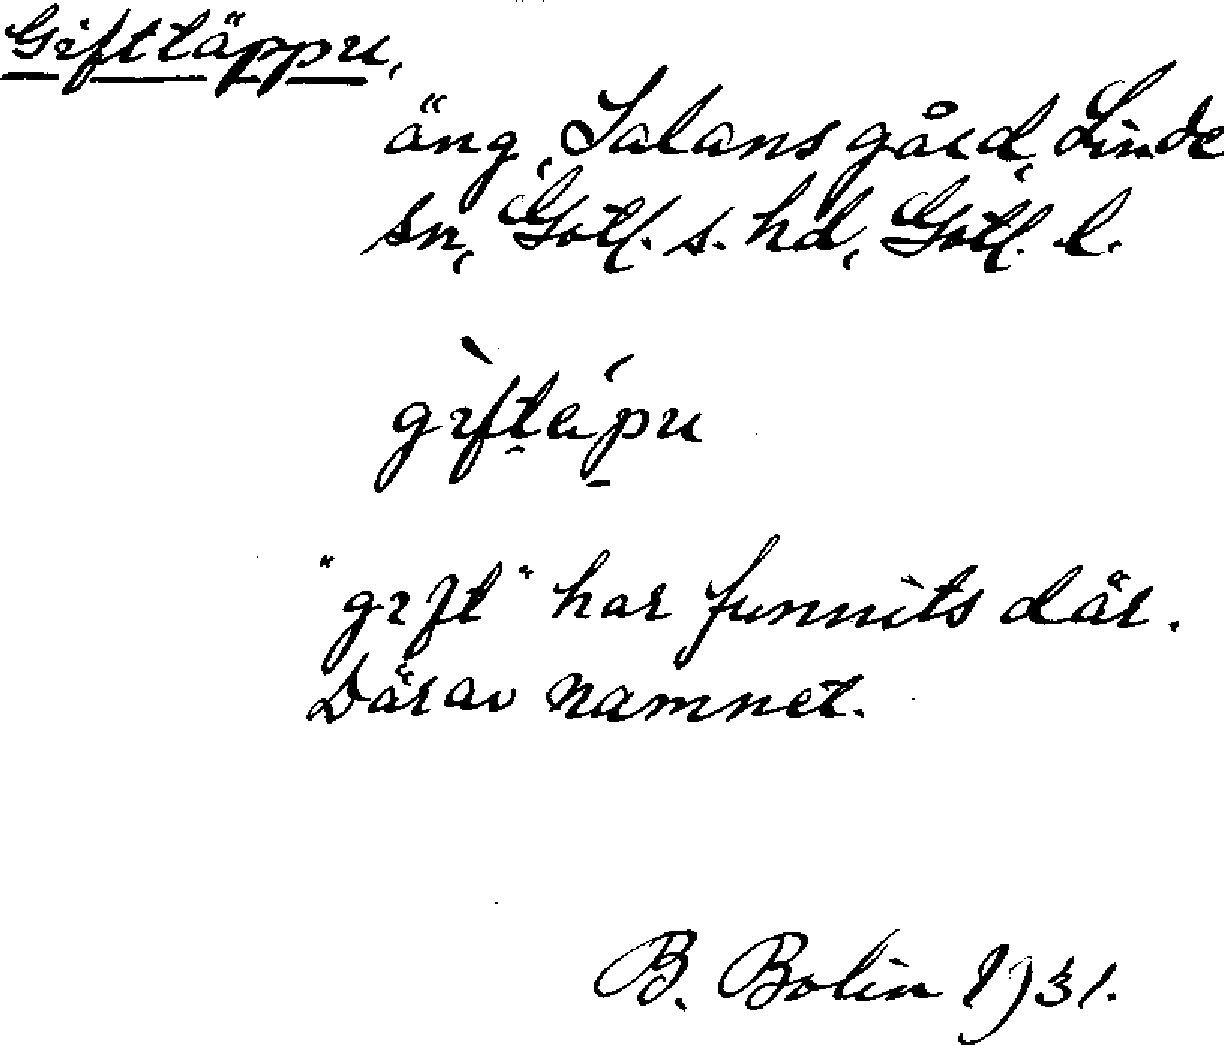 Gifttäppu,
äng, Salans gård, Linde
sn, Gotl. s. hd, Gotl. l.
gìftápu
"gift" har funnits där.
Därav namnet.
B. Bolin 1931.